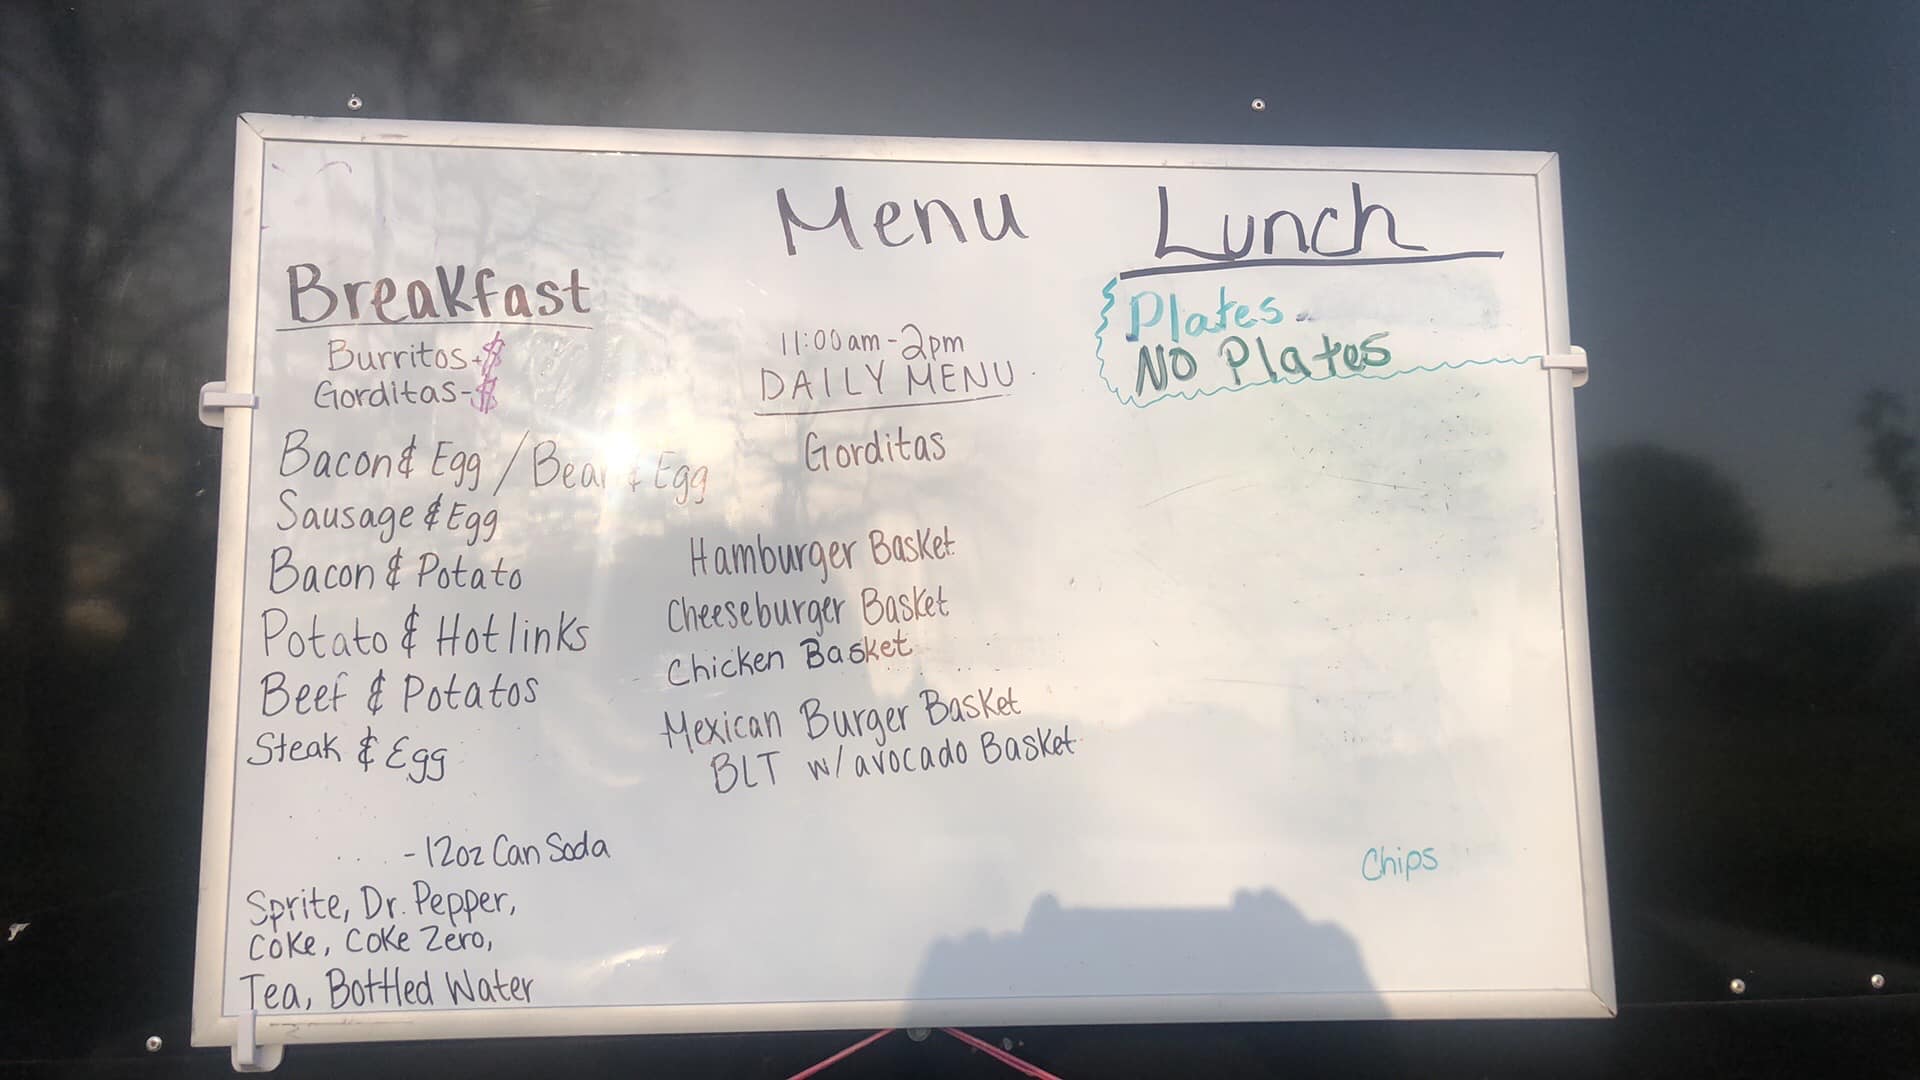 Menu
Breakfast
Burritos-$
Gorditas-$
Bacon & Egg / Bean & Egg
Sausage & Egg
Bacon & Potato
Potato & Hotlinks
Beef & Potatos
Steak & Egg
-12oz Can Soda
Sprite, Dr. Pepper,
Coke, Coke Zero,
Tea, Bottled Water
11:00am-2pm
DAILY MENU
Gorditas
Hamburger Basket
Cheeseburger Basket
Chicken Basket
Mexican Burger Basket
BLT w/avocado Basket
Lunch
Plates
NO Plates
Chips